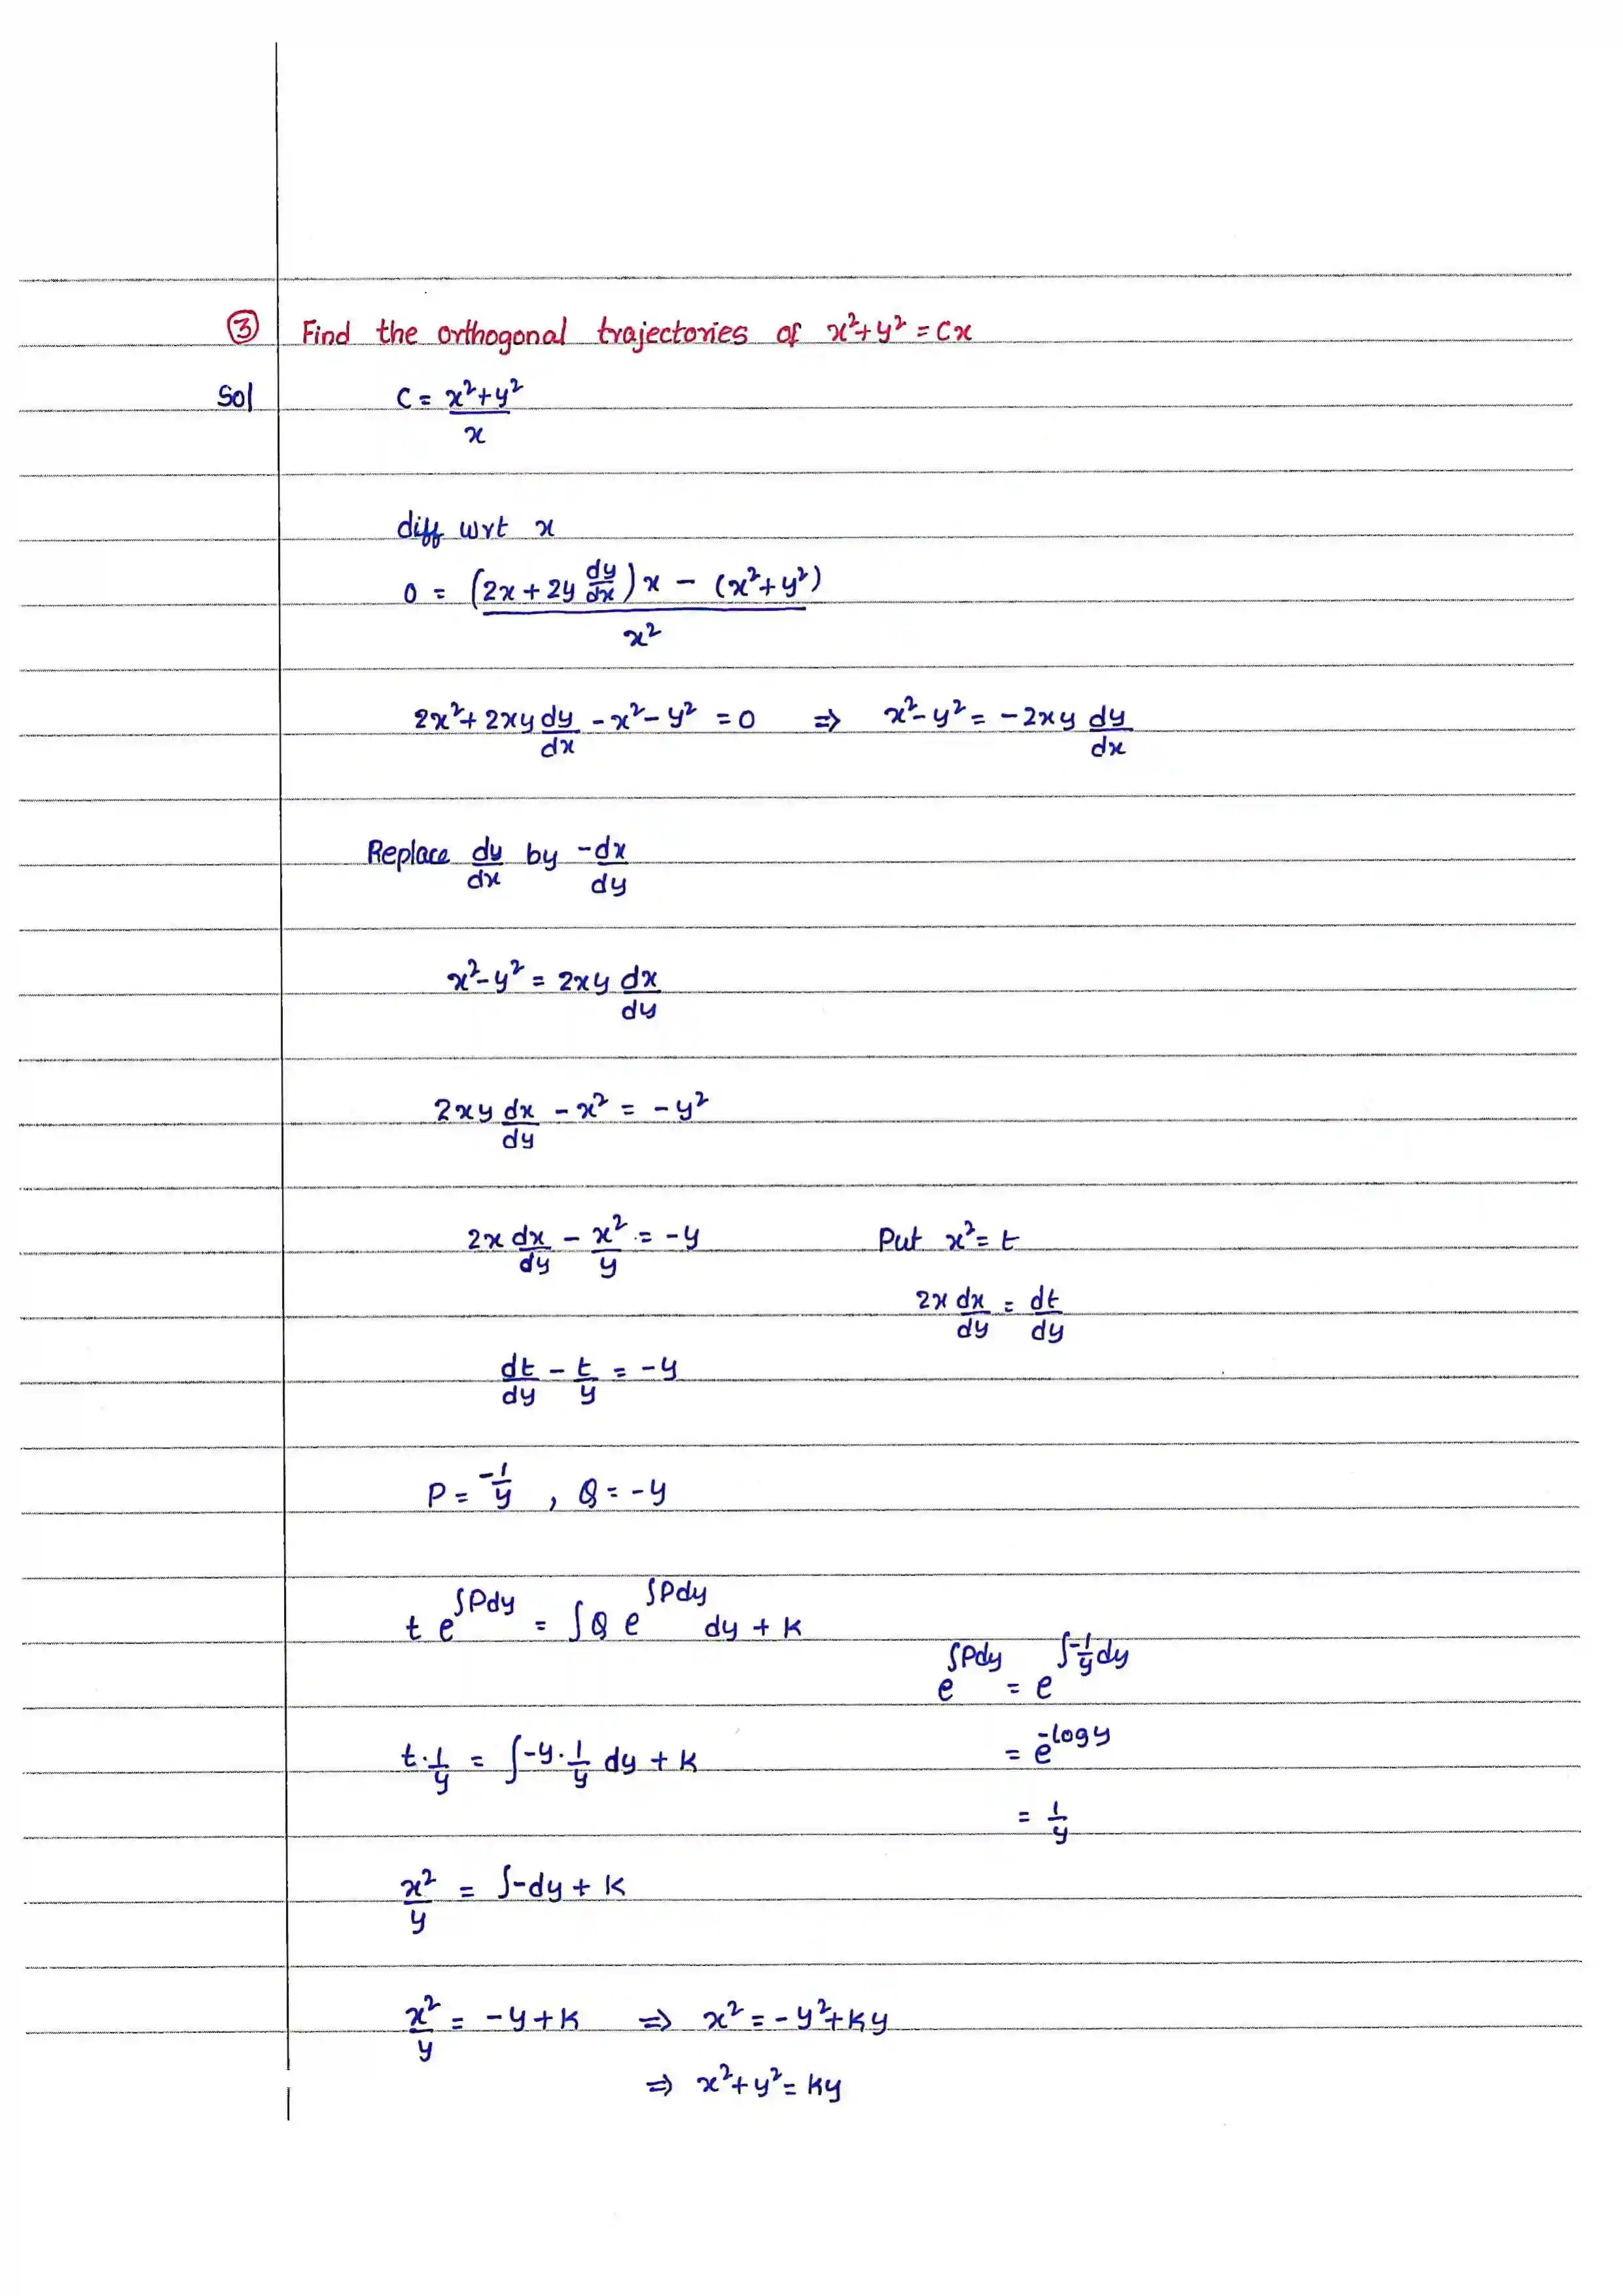 ③ Find the orthogonal trajectories of x²+y² = cx
Sol C = (x²+y²)/x
diff wrt x
0 = ((2x + 2y dy/dx) x − (x²+y²))/x²
2x² + 2xy dy/dx − x² − y² = 0 ⇒ x² − y² = −2xy dy/dx
Replace dy/dx by −dx/dy
x² − y² = 2xy dx/dy
2xy dx/dy − x² = −y²
2x dx/dy − x²/y = −y Put x² = t
2x dx/dy = dt/dy
dt/dy − t/y = −y
P = −1/y , Q = −y
t e^(∫Pdy) = ∫Q e^(∫Pdy) dy + k
e^(∫Pdy) = e^(∫−1/y dy)
t · 1/y = ∫−y · 1/y dy + k = e^(−log y)
= 1/y
x²/y = ∫−dy + k
x²/y = −y + k ⇒ x² = −y² + ky
⇒ x² + y² = ky